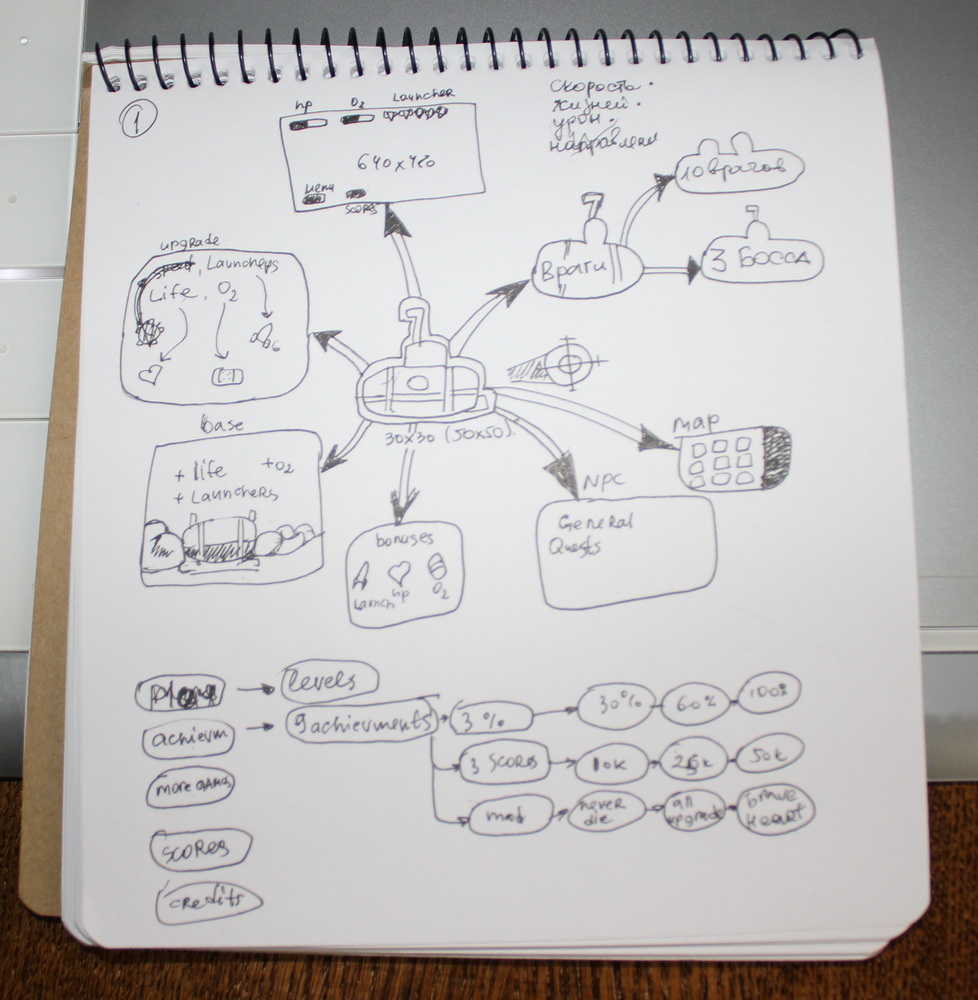 1
HP O2 Launcher
640x480
Menu
scores
скорость.
жизней.
урон.
10 врагов
Враги
3 БОССА
upgrade
speed, Launchers
Life, O2
30x30 (50x50).
map
base
+ life +O2
+ Launchers
NPC
General
Quests
bonuses
Launch HP O2
Play
levels
achievm
9 achievments
3 %
30%
60%
100%
3 scores
10k
25k
50k
more games
never
die
all
upgrade
brave
heart
scores
credits